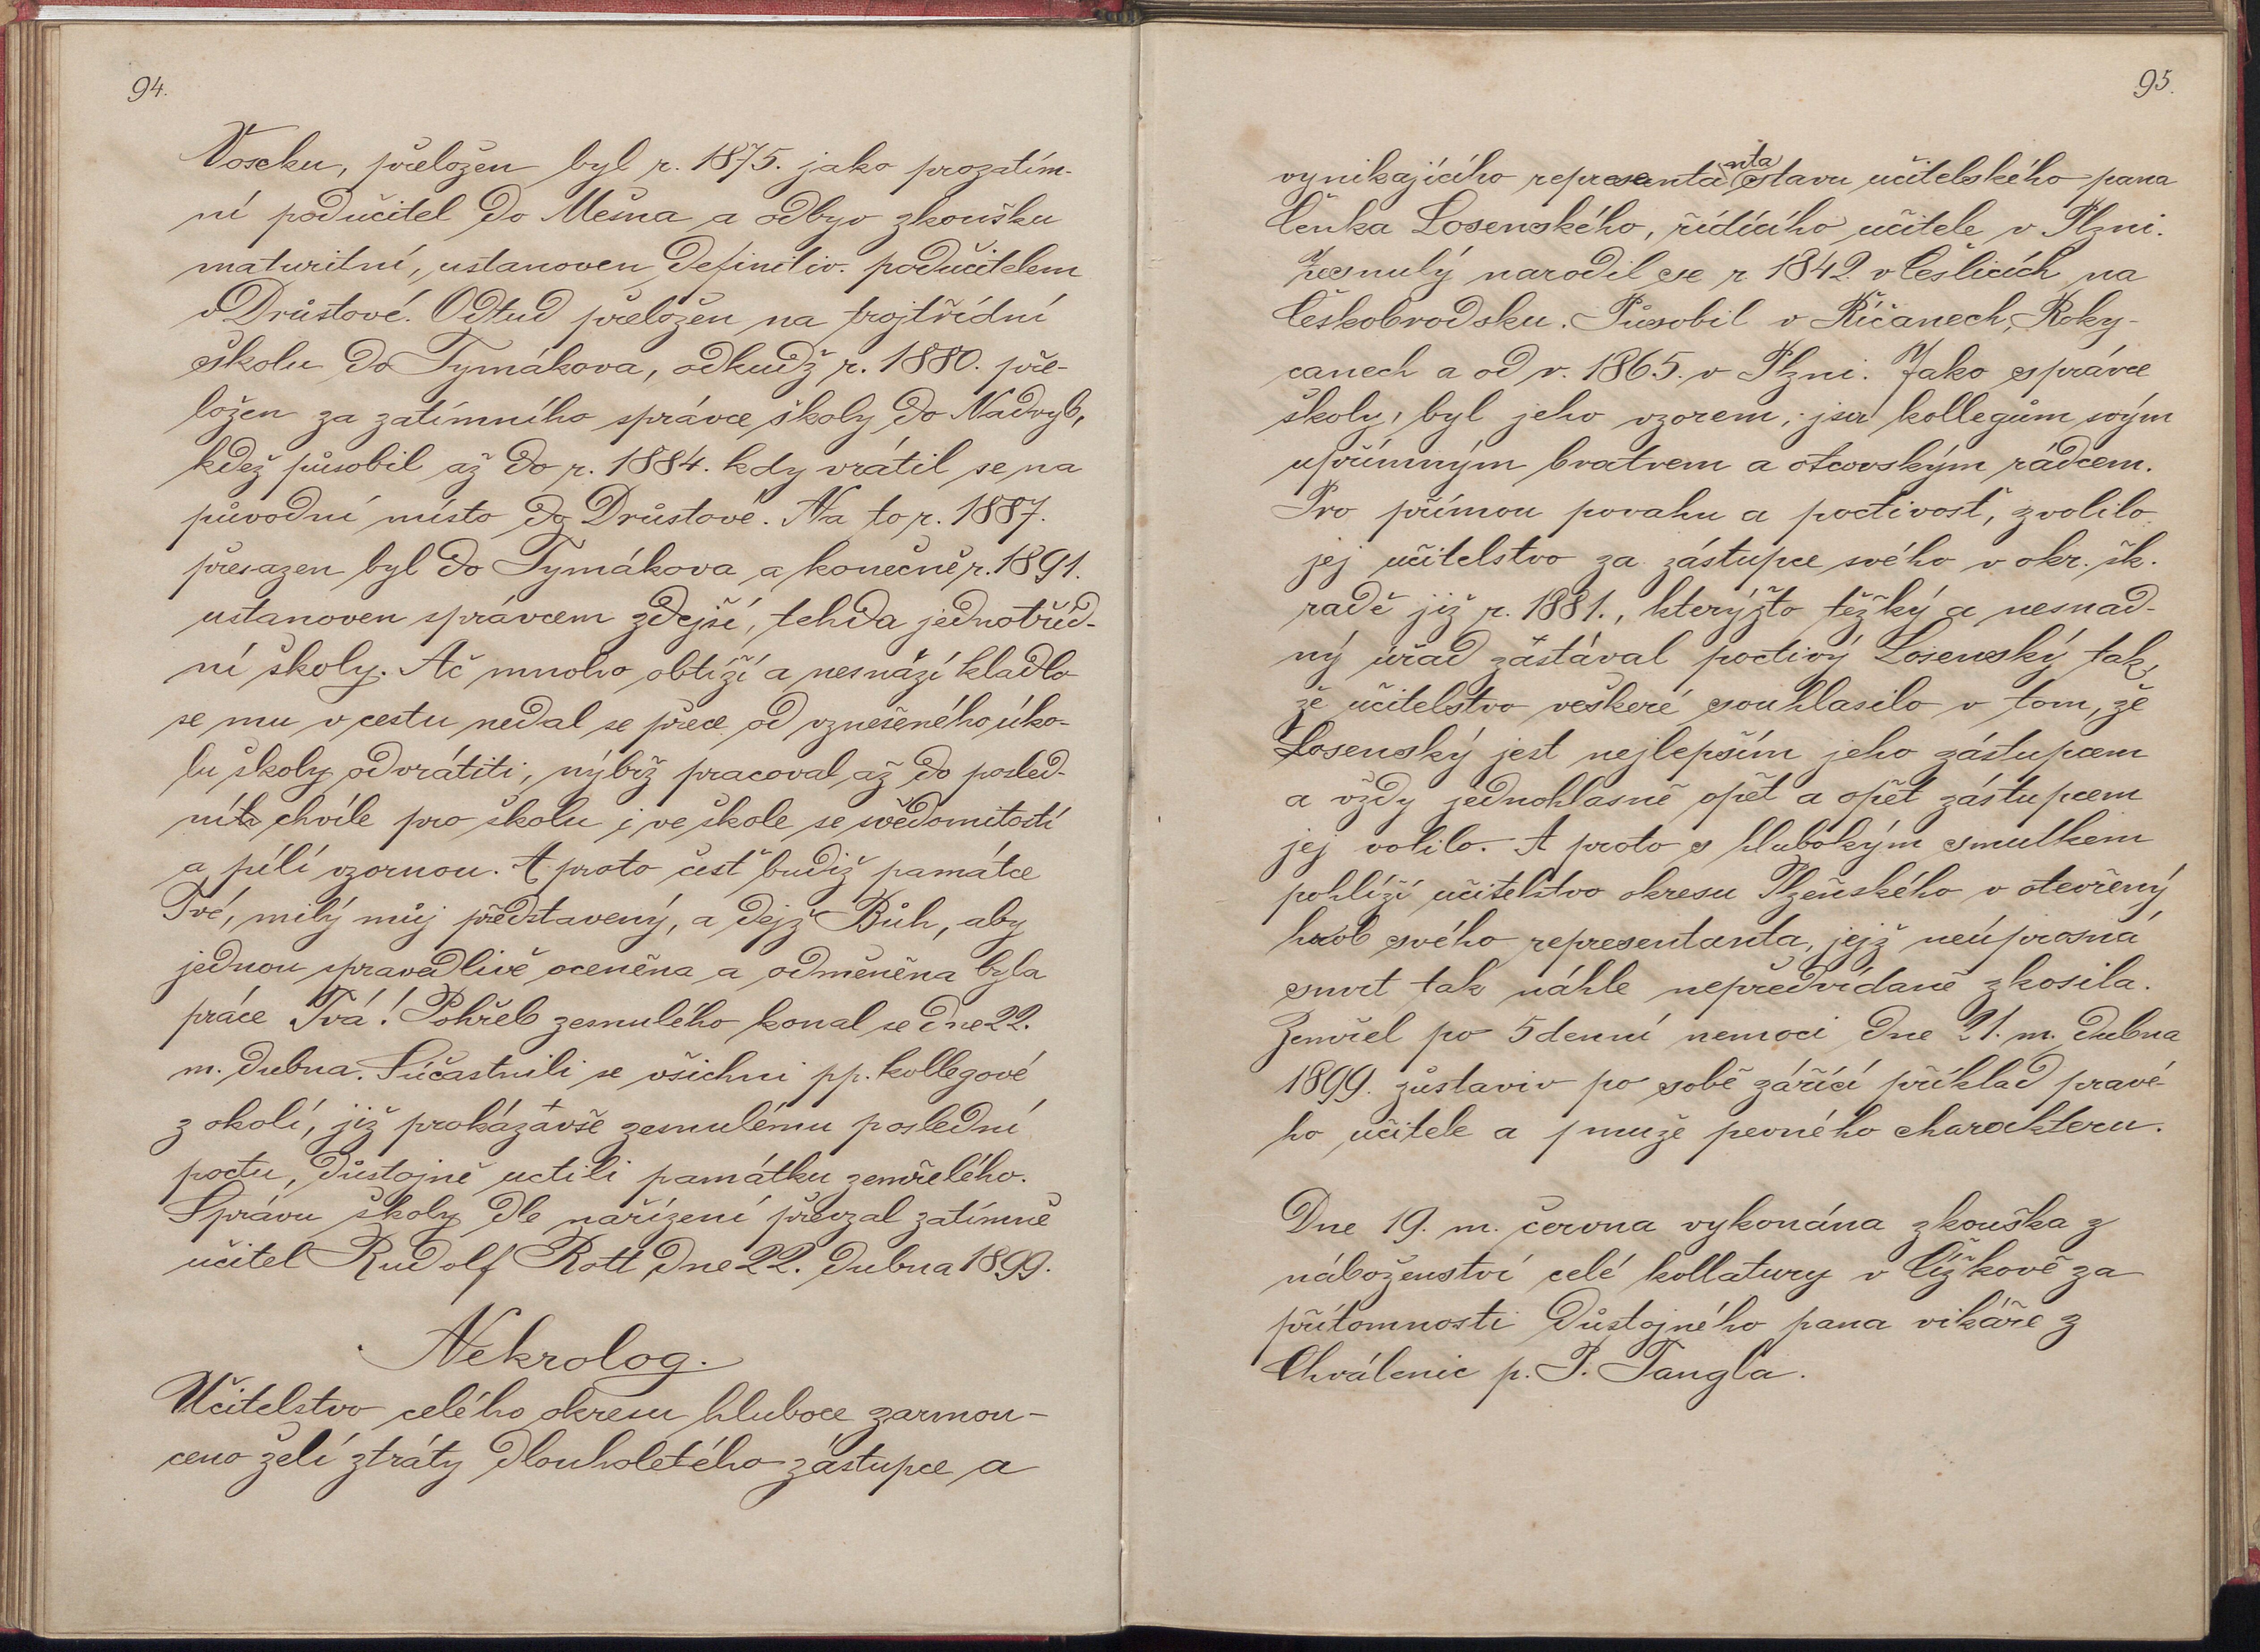 94.
Voseku, přeložen byl r. 1875. jako prozatím-
ní podučitel do Mešna a odbyv zkoušku
maturitní, ustanoven definitiv. podučitelem
v Drůstové. Odtud přeložen na trojtřídní
školu do Tymákova, odkudž r. 1880. pře-
ložen za zatímního správce školy do Nadryb,
kdež působil až do r. 1884. kdy vrátil se na
původní místo do Drůstové. Na to r. 1887.
přesazen byl do Tymákova a konečně r. 1891.
ustanoven správcem zdejší, tehda jednotříd-
ní školy. Ač mnoho obtíží a nesnází kladlo
se mu v cestu nedal se přece od vznešeného úko-
lu školy odvrátiti, nýbrž pracoval až do posled-
ní chvíle pro školu i ve škole se svědomitostí
a pílí vzornou. A proto čest budiž památce
Tvé, milý můj představený, a dejž Bůh, aby
jednou spravedlivě oceněna a odměněna byla
práce Tvá! Pohřeb zesnulého konal se dne 22.
m. dubna. Súčastnili se všichni pp. kollegové
z okolí, již prokázavše zesnulému poslední
poctu, důstojně uctili památku zemřelého.
Správu školy dle nařízení převzal zatímně
učitel Rudolf Rott dne 22. dubna 1899.
Nekrolog.
Učitelstvo celého okresu hluboce zarmou-
ceno želí ztráty dlouholetého zástupce a
95.
vynikajícího representanta stavu učitelského pana
Čeňka Losenského, řídícího učitele v Plzni.
Zesnulý narodil se r 1842 v Češlicích na
Českobrodsku. Působil v Říčanech, Roky-
canech a od r. 1865. v Plzni. Jako správce
školy, byl jeho vzorem, jsa kollegům svým
upřímným bratrem a otcovským rádcem.
Pro přímou povahu a poctivosť, zvolilo
jej učitelstvo za zástupce svého v okr. šk.
radě již r. 1881., kterýžto těžký a nesnad-
ný úřad zastával poctivý Losenský tak,
že učitelstvo veškeré souhlasilo v tom, že
Losenský jest nejlepším jeho zástupcem
a vždy jednohlasně opět a opět zástupcem
jej volilo. A proto s hlubokým smutkem
pohlíží učitelstvo okresu Plzeňského v otevřený
hrob svého representanta, jejž neúprosná
smrt tak náhle nepředvídaně zkosila.
Zemřel po 5denní nemoci dne 21. m. dubna
1899. zůstaviv po sobě zářící příklad pravé-
ho učitele a muže pevného charakteru.
Dne 19. m. června vykonána zkouška z
náboženství celé kollatury v Čížkově za
přítomnosti důstojného pana vikáře z
Chválenic p. P. Tangla.